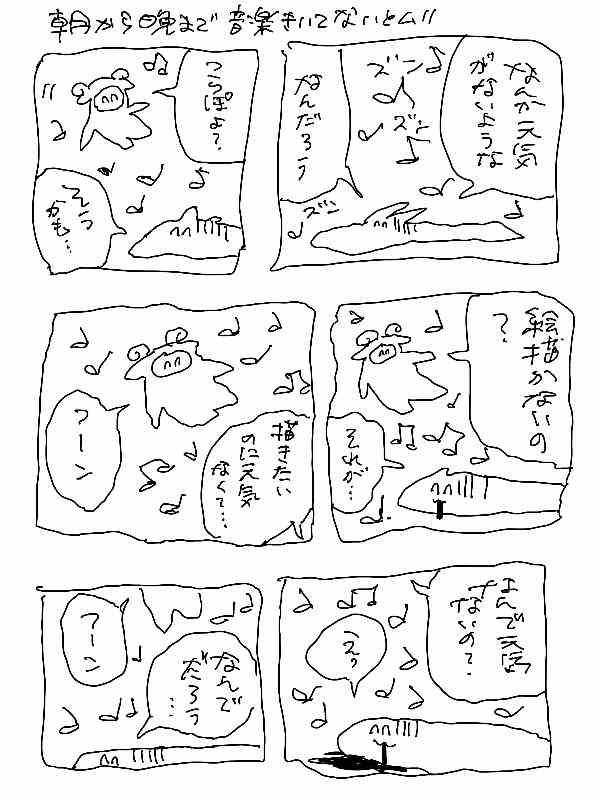 朝から晩まで音楽きいてないとムリ
なんか元気
がないような
ズン
ズン
なんだろう
ズン
つらぽよ?
そう
かも…
絵描かないの
?
それが…
描きたい
のに元気
なくて…
フーン
なんで元気
ないの?
えっ
なんで
だろう
…
フーン